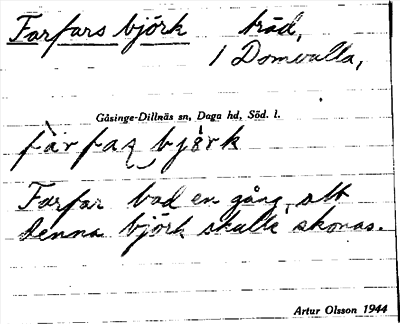 Farfars björk träd,
1 Domvalla,
Gåsinge-Dillnäs sn, Daga hd, Söd. l.
farfaʂ björk
Farfar bad en gång, att
denna björk skulle skonas.
Artur Olsson 1944